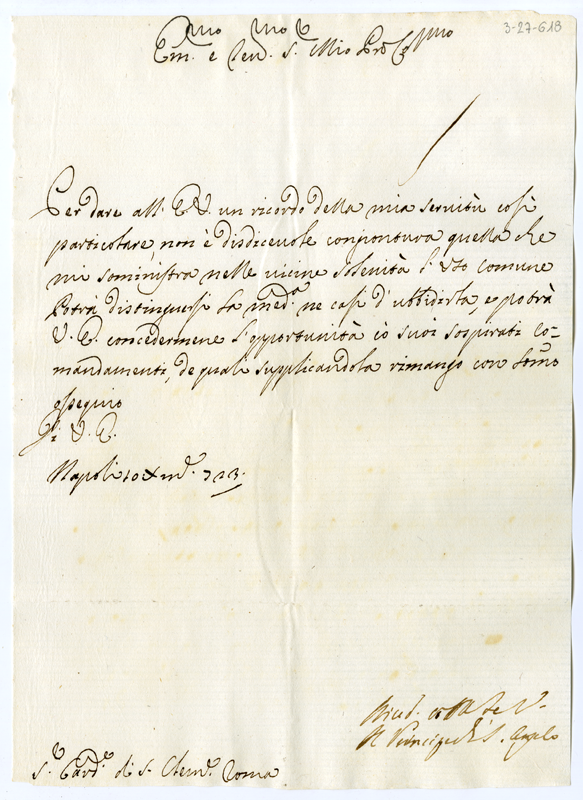 3-27-618
Em.mo e Rev.mo S.r Mio Pron Col.mo
Per dare all' E.V. un ricordo della mia servitù così
particolare, non è disdicevole conjontura quella che
mi soministra nelle vicine solenità l' uso comune
Potrà distinguersi la med.a ne casi d' ubbidirla, e potrà
V. E. concedermene l' opportunità co suoi sospirati Co-
mandamenti, de quali supplicandola rimango con somo
ossequio
Di V. E.
Napoli 10 Xm.e 723.
Il Principe di S. Angelo
S.r Card.e di S. Clem.e Roma